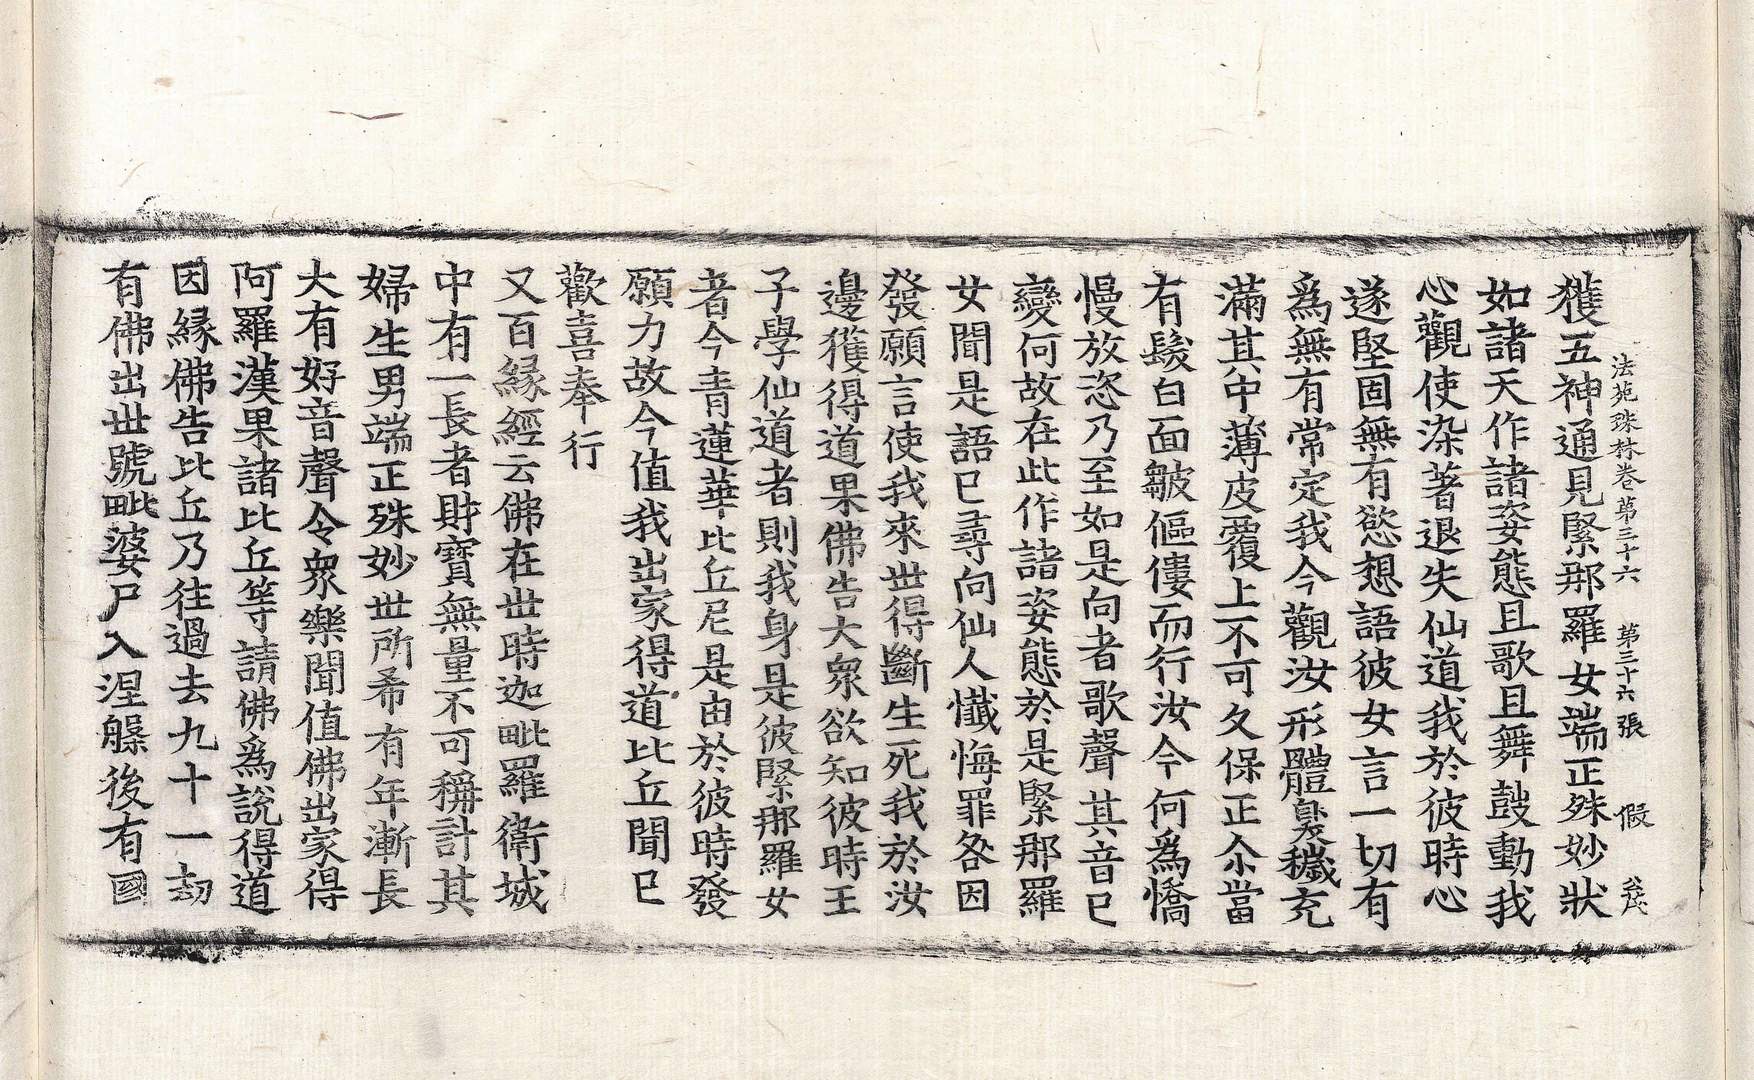 法苑珠林卷第三十六　第三十六張　假
獲五神通見緊那羅女端正殊妙狀
如諸天作諸姿態且歌且舞鼓動我
心觀使染著退失仙道我於彼時心
遂堅固無有慾想語彼女言一切有
爲無有常定我今觀汝形體臭穢充
滿其中薄皮覆上不可久保正尒當
有髮白面皺傴僂而行汝今何爲憍
慢放恣乃至如是向者歌聲其音已
變何故在此作諸姿態於是緊那羅
女聞是語已尋向仙人懺悔罪咎因
發願言使我來世得斷生死我於汝
邊獲得道果佛告大衆欲知彼時王
子學仙道者則我身是彼緊那羅女
者今青蓮華比丘尼是由於彼時發
願力故今值我出家得道比丘聞已
歡喜奉行
又百緣經云佛在世時迦毗羅衛城
中有一長者財寶無量不可稱計其
婦生男端正殊妙世所希有年漸長
大有好音聲令衆樂聞值佛出家得
阿羅漢果諸比丘等請佛爲說得道
因緣佛告比丘乃往過去九十一劫
有佛出世號毗婆尸入涅槃後有國